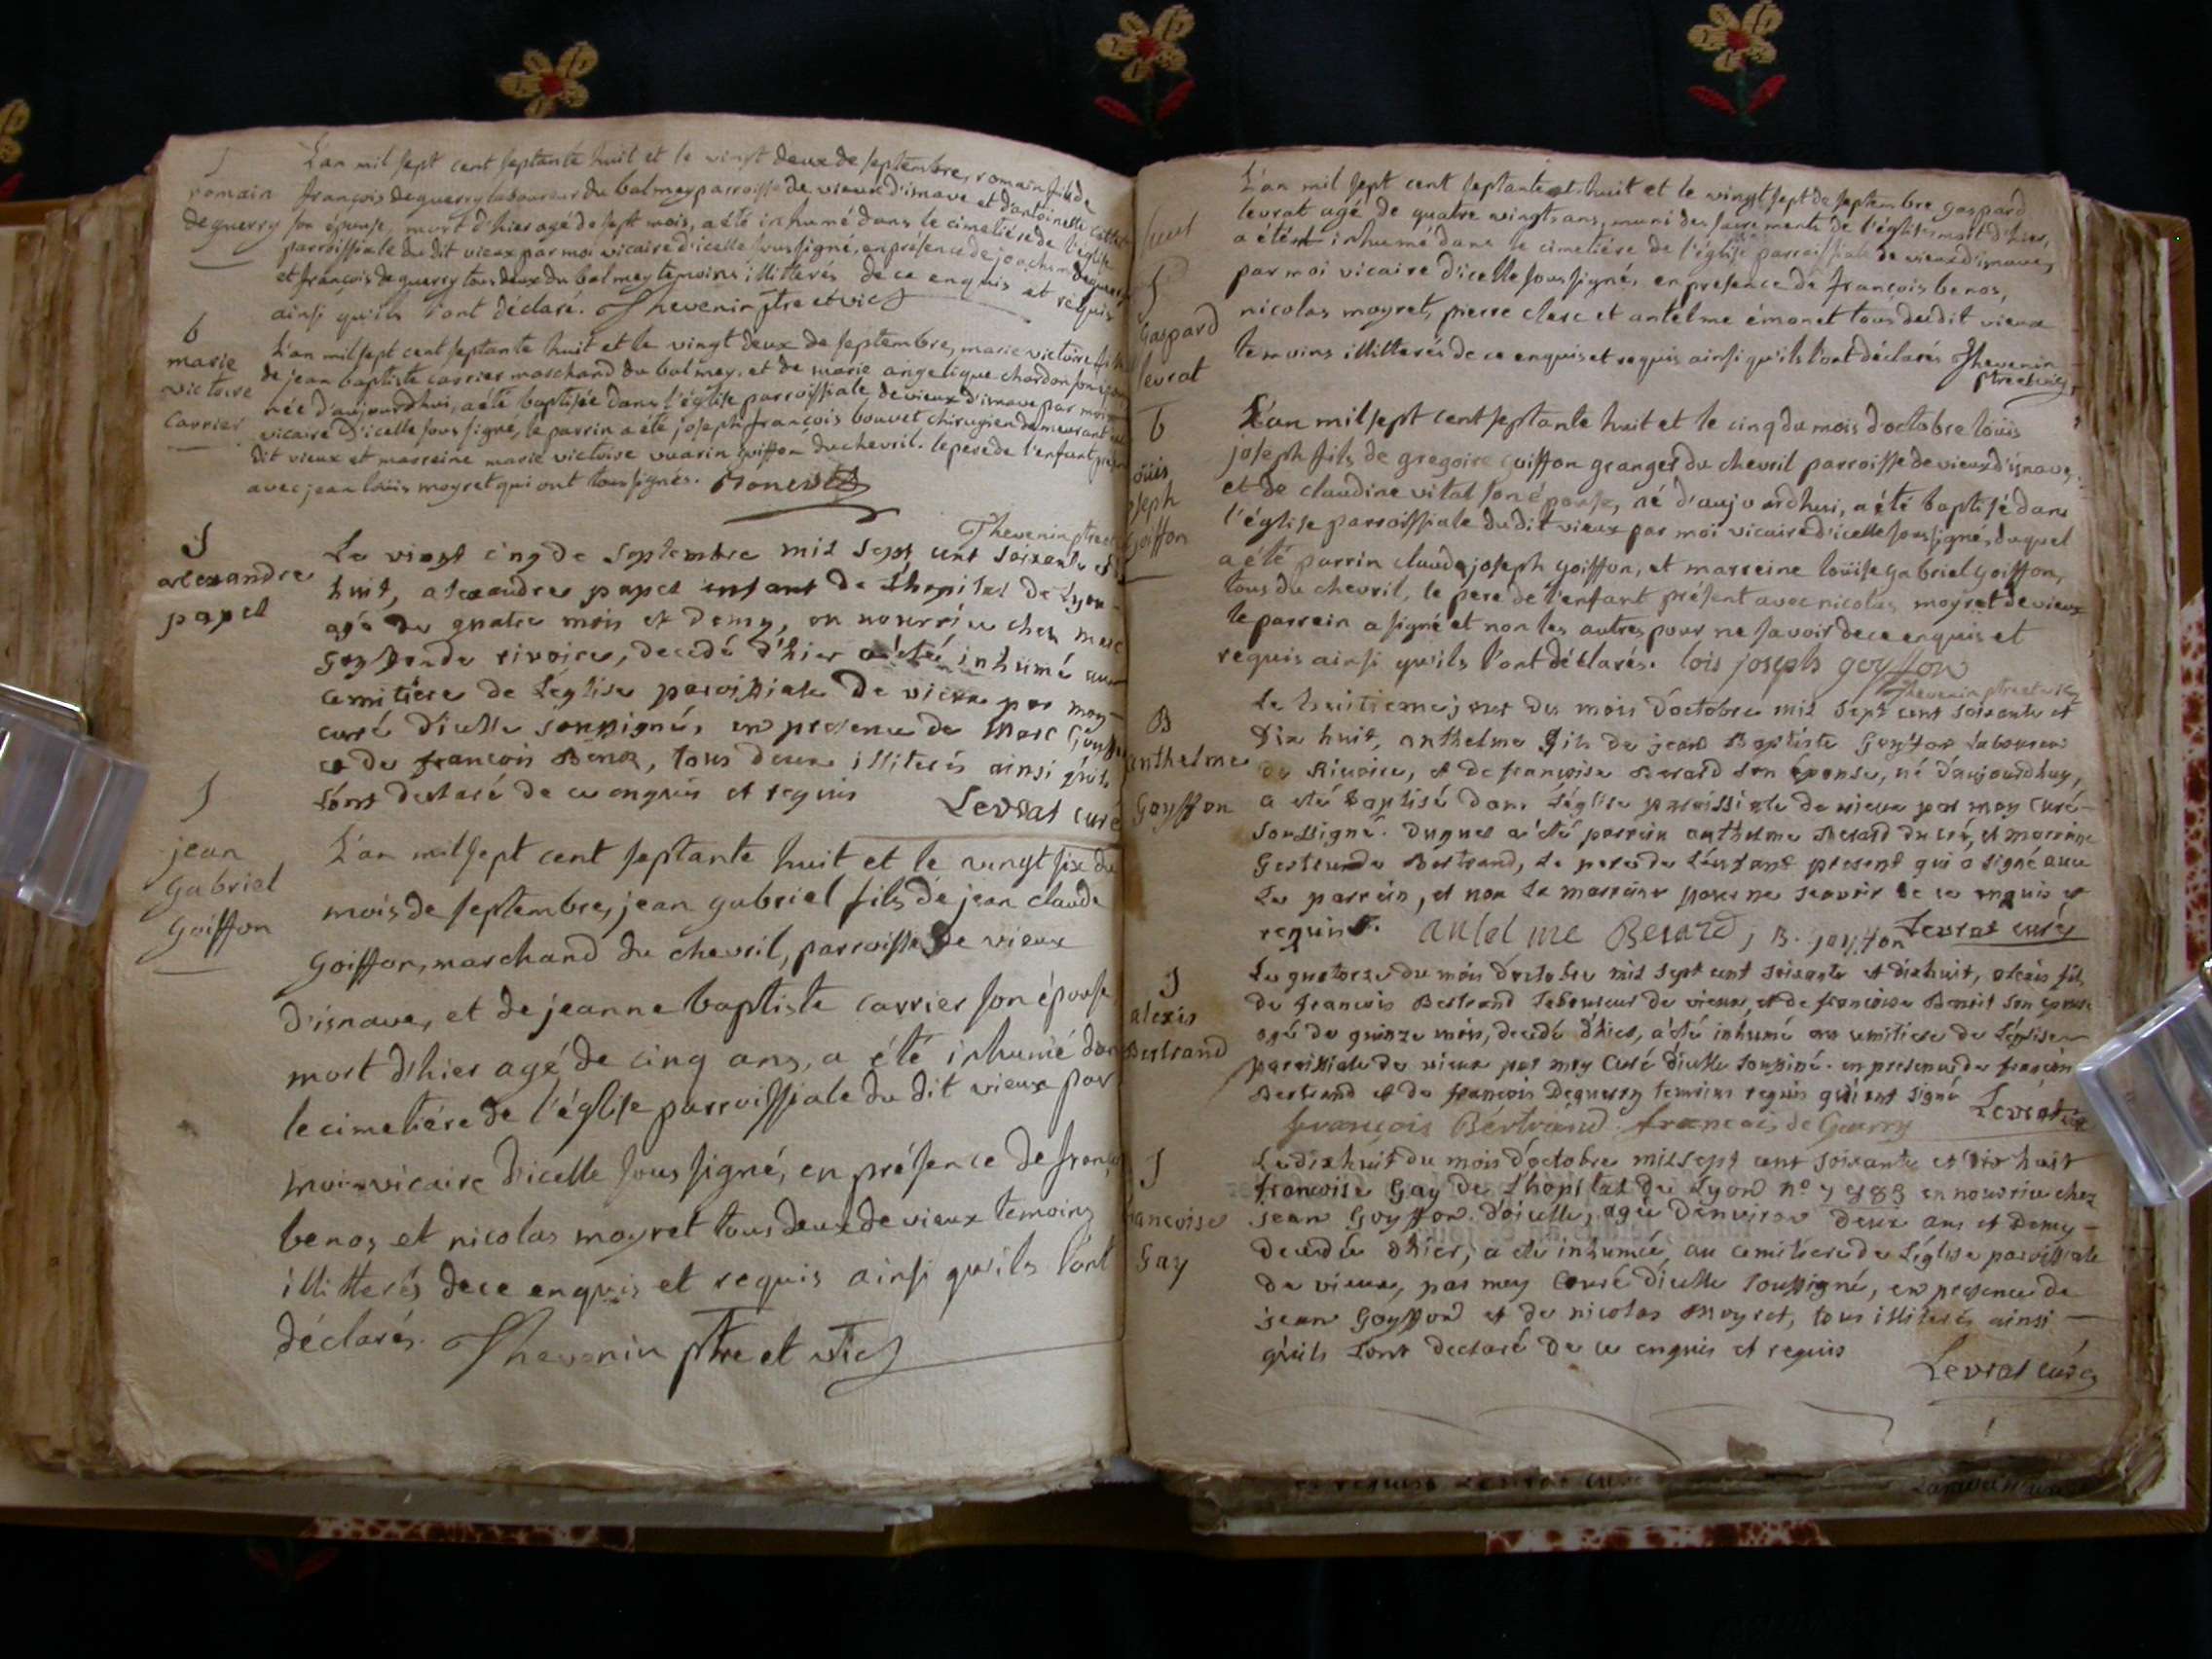 S
romain
deguerry
L'an mil sept cent septante huit et le vingt deux de septembre, romain fils de
françois deguerry laboureur du balmey parroisse de vieux d'isnave et d'antoinette
son épouse, mort d'hier agé de sept mois, a été inhumé dans le cimetiére de l'église
parroissiale du dit vieux par moi vicaire d'icelle soussigné, en présence de joachim deguerry
et françois deguerry tous deux du balmey temoins illitterés de ce enquis et requis
ainsi qu'ils l'ont déclaré. Thevenin ptre et vic
b
marie
victoire
carrier
L'an mil sept cent septante huit et le vingt deux de septembre, marie victoire fille
de jean baptiste carrier marchand du balmey, et de marie angelique chardon son épouse
née d'aujourdhui, a été baptisée dans l'église parroissiale de vieux d'isnave par moi
vicaire d'icelle sous signé, le parrin a été joseph françois bouvet chirugien demeurant au
dit vieux et marreine marie victoire vuarin goiffon du chevril. le pere de l'enfant présent
avec jean loüis moyret qui ont tous signés.
Thevenin ptre
S
alexandre
papet
Le vingt cinq de septembre mil sept cent soixante et
huit, alexandre papet enfant de L'hopital de Lyon
agé de quatre mois et demy, en nourrice chez marc
goyffon de rivoire, decedé d'hier a été inhumé au
cemitiere de L'église paroissiale de vieux par moy
curé d'icelle soussigné, en presence de Marc goyffon
et de françois Benoz, tous deux illiterés ainsi qu'ils
L'ont declaré de ce enquis et requis Levrat curé
S
jean
gabriel
goiffon
L'an mil sept cent septante huit et le vingt six du
mois de septembre, jean gabriel fils de jean claude
goiffon, marchand du chevril, parroisse de vieux
d'isnave, et de jeanne baptiste carrier son épouse
mort d'hier agé de cinq ans, a été inhumé dans
le cimetiére de l'église parroissiale du dit vieux par
moi vicaire d'icelle sous signé, en présence de françois
benoz et nicolas moyret tous deux de vieux temoins
illitterés de ce enquis et requis ainsi qu'ils l'ont
déclarés. Thevenin ptre et vic
S
gaspard
levrat
L'an mil sept cent septante et huit et le vingt sept de septembre gaspard
levrat agé de quatre vingts ans, muni des sacrements de l'église mort d'hier,
a été inhumé dans le cimetiére de l'église parroissiale de vieux d'isnave,
par moi vicaire d'icelle sous signé, en presence de françois benos,
nicolas moyret, pierre clerc et antelme émonet tous du dit vieux
temoins illitterés de ce enquis et requis ainsi qu'ils l'ont déclarés Thevenin
ptre et vic
b
oüis
oseph
goiffon
L'an mil sept cent septante huit et le cinq du mois d'octobre loüis
joseph fils de gregoire goiffon granger du chevril parroisse de vieux d'isnave,
et de claudine vital son épouse, né d'aujourdhui, a été baptisé dans
l'église parroissiale du dit vieux par moi vicaire d'icelle sous signé, duquel
a été parrin claude joseph goiffon, et marreine loüise gabriel goiffon,
tous du chevril, le pere de l'enfant présent avec nicolas moyret de vieux
le parrein a signé et non les autres pour ne savoir de ce enquis et
requis ainsi qu'ils l'ont déclarés. lois joseph goyffon
Thevenin ptre et vic
B
anthelme
Goyffon
Le huitieme jour du mois d'octobre mil sept cent soixante et
dix huit, anthelme fils de jean Baptiste Goyffon Laboureur
de Rivoire, et de françoise Berard son épouse, né d'aujourdhuy,
a eté baptisé dans L'église paroissiale de vieux par moy curé
soussigné. duquel a été parrein anthelme Berard et marraine
Gertrude Bertrand, Le pere de L'enfant present qui a signé avec
Le parrein, et non La marraine pour ne sçavoir de ce enquis et
requise. antel me Berard, B. goyffon Levrat curé
S
alexis
Bertrand
Le quatorze du mois d'octobre mil sept cent soixante et dixhuit, alexis fils
de François Bertrand Laboureur de vieux, et de françoise Benoit son épouse
agé de quinze mois, decedé d'hier, a été inhumé au cemitiere de L'église
paroissiale de vieux par moy Curé d'icelle soussigné. en presence de françois
Bertrand et de françois Deguerry temoins requis qui ont signé Levrat curé
françois Bértrand. francois de Guerry
S
ancoise
Gay
Le dixhuit du mois d'octobre mil sept cent soixante et dix huit
françoise Gay de L'hopital de Lyon n° 7983 en nourrice chez
jean Goyffon d'oicelle, agée d'environ deux ans et demy
decedée d'hier, a été inhumée, au cemitiere de L'église paroissiale
de vieux, par moy Curé d'icelle soussigné, en presence de
jean Goyffon et de nicolas Moyret, tous illiterés ainsi
qu'ils L'ont declaré de ce enquis et requis
Levrat curé